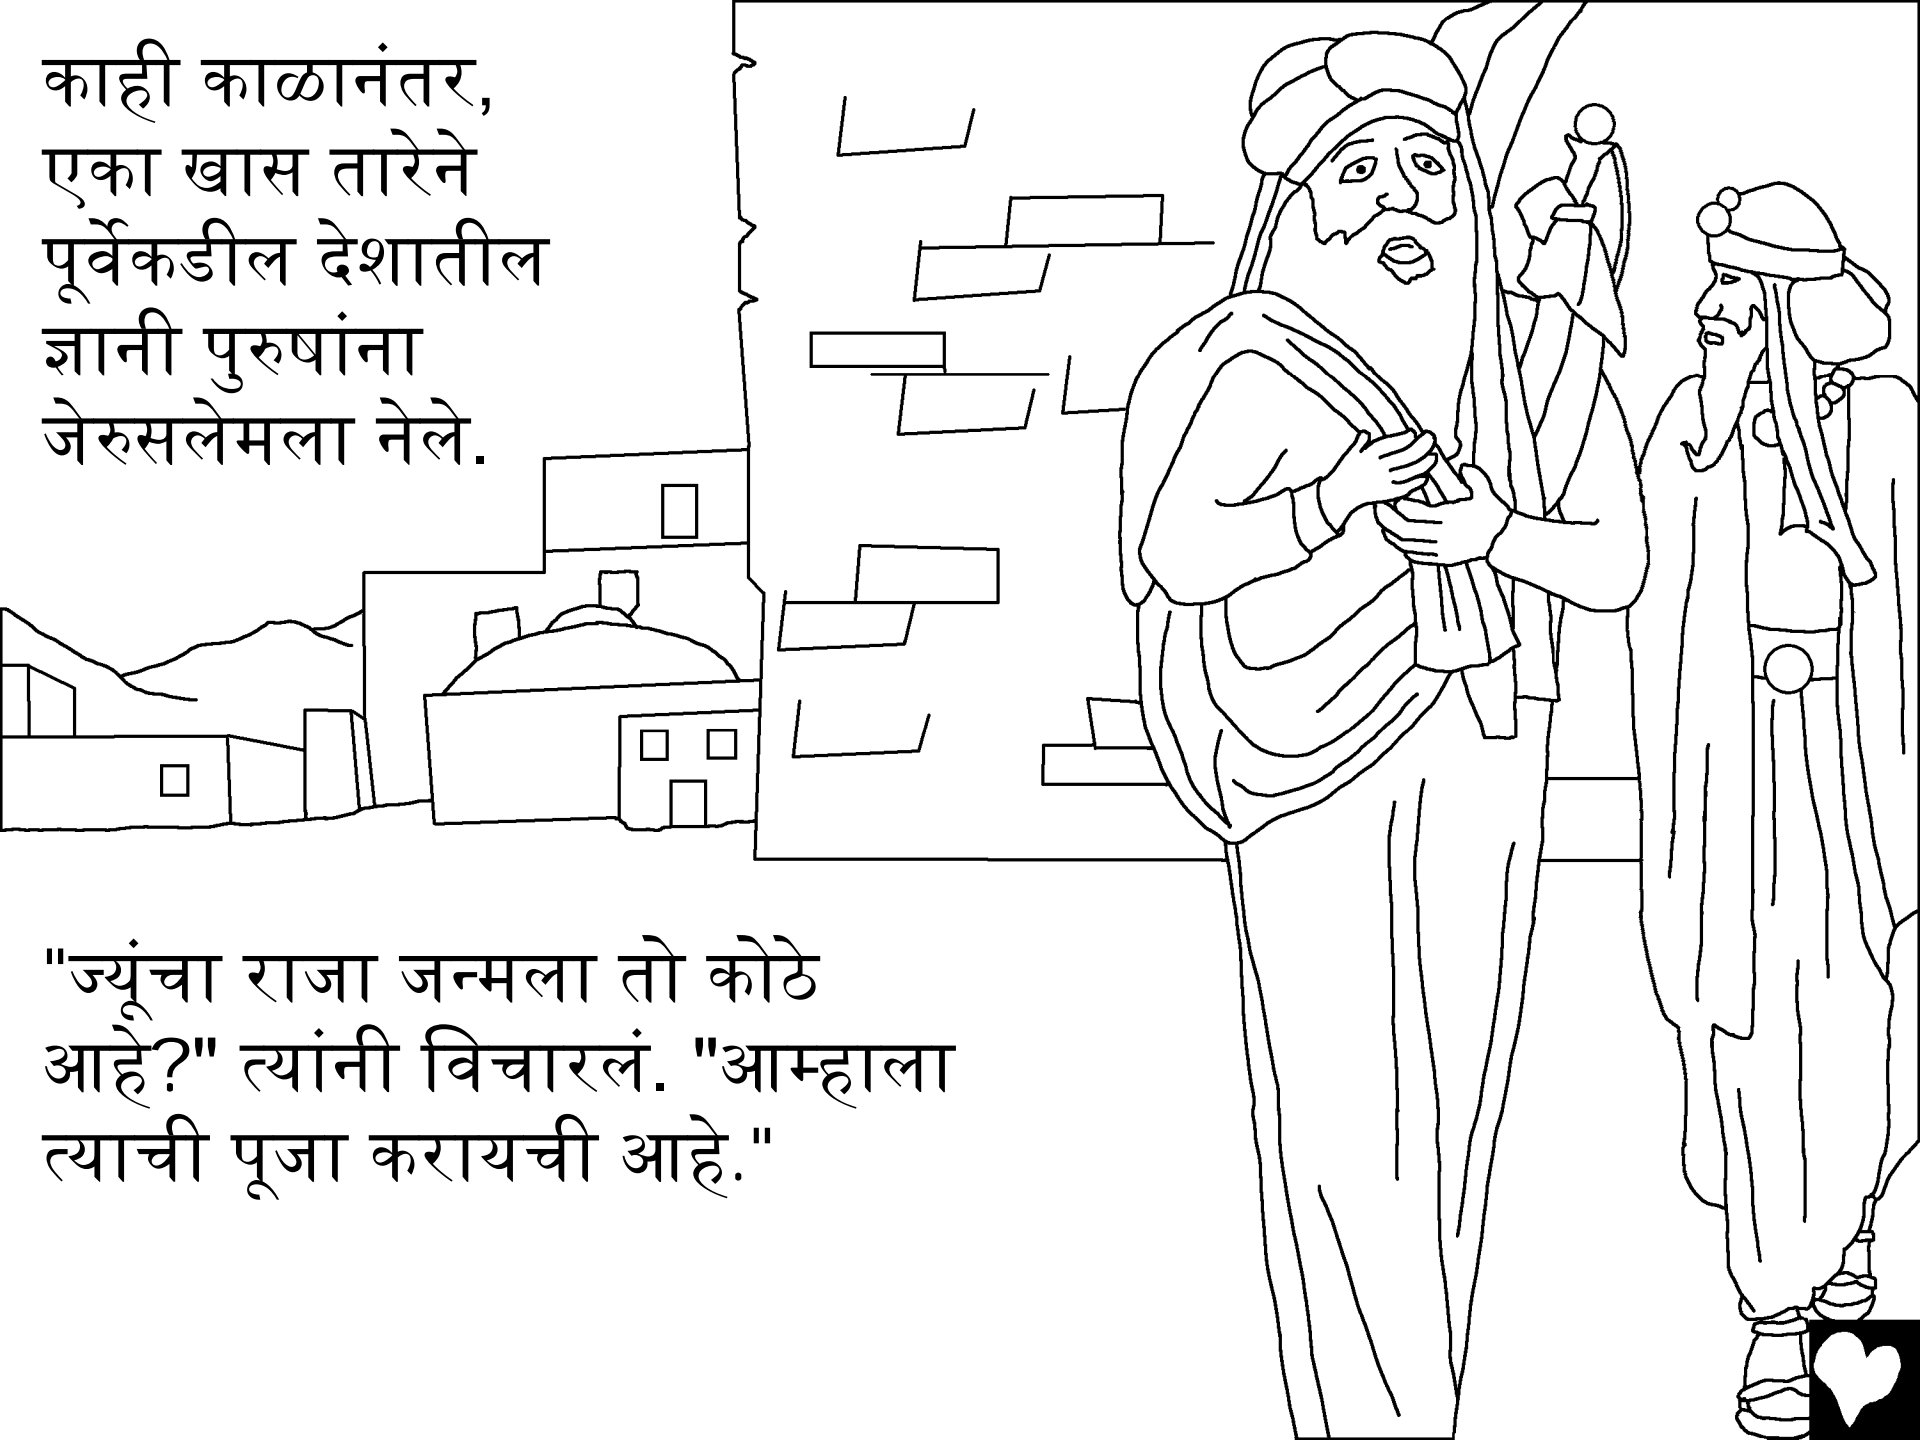 काही काळानंतर,
एका खास तारेने
पूर्वेकडील देशातील
ज्ञानी पुरुषांना
जेरुसलेमला नेले.
"ज्यूंचा राजा जन्मला तो कोठे
आहे?" त्यांनी विचारलं. "आम्हाला
त्याची पूजा करायची आहे."